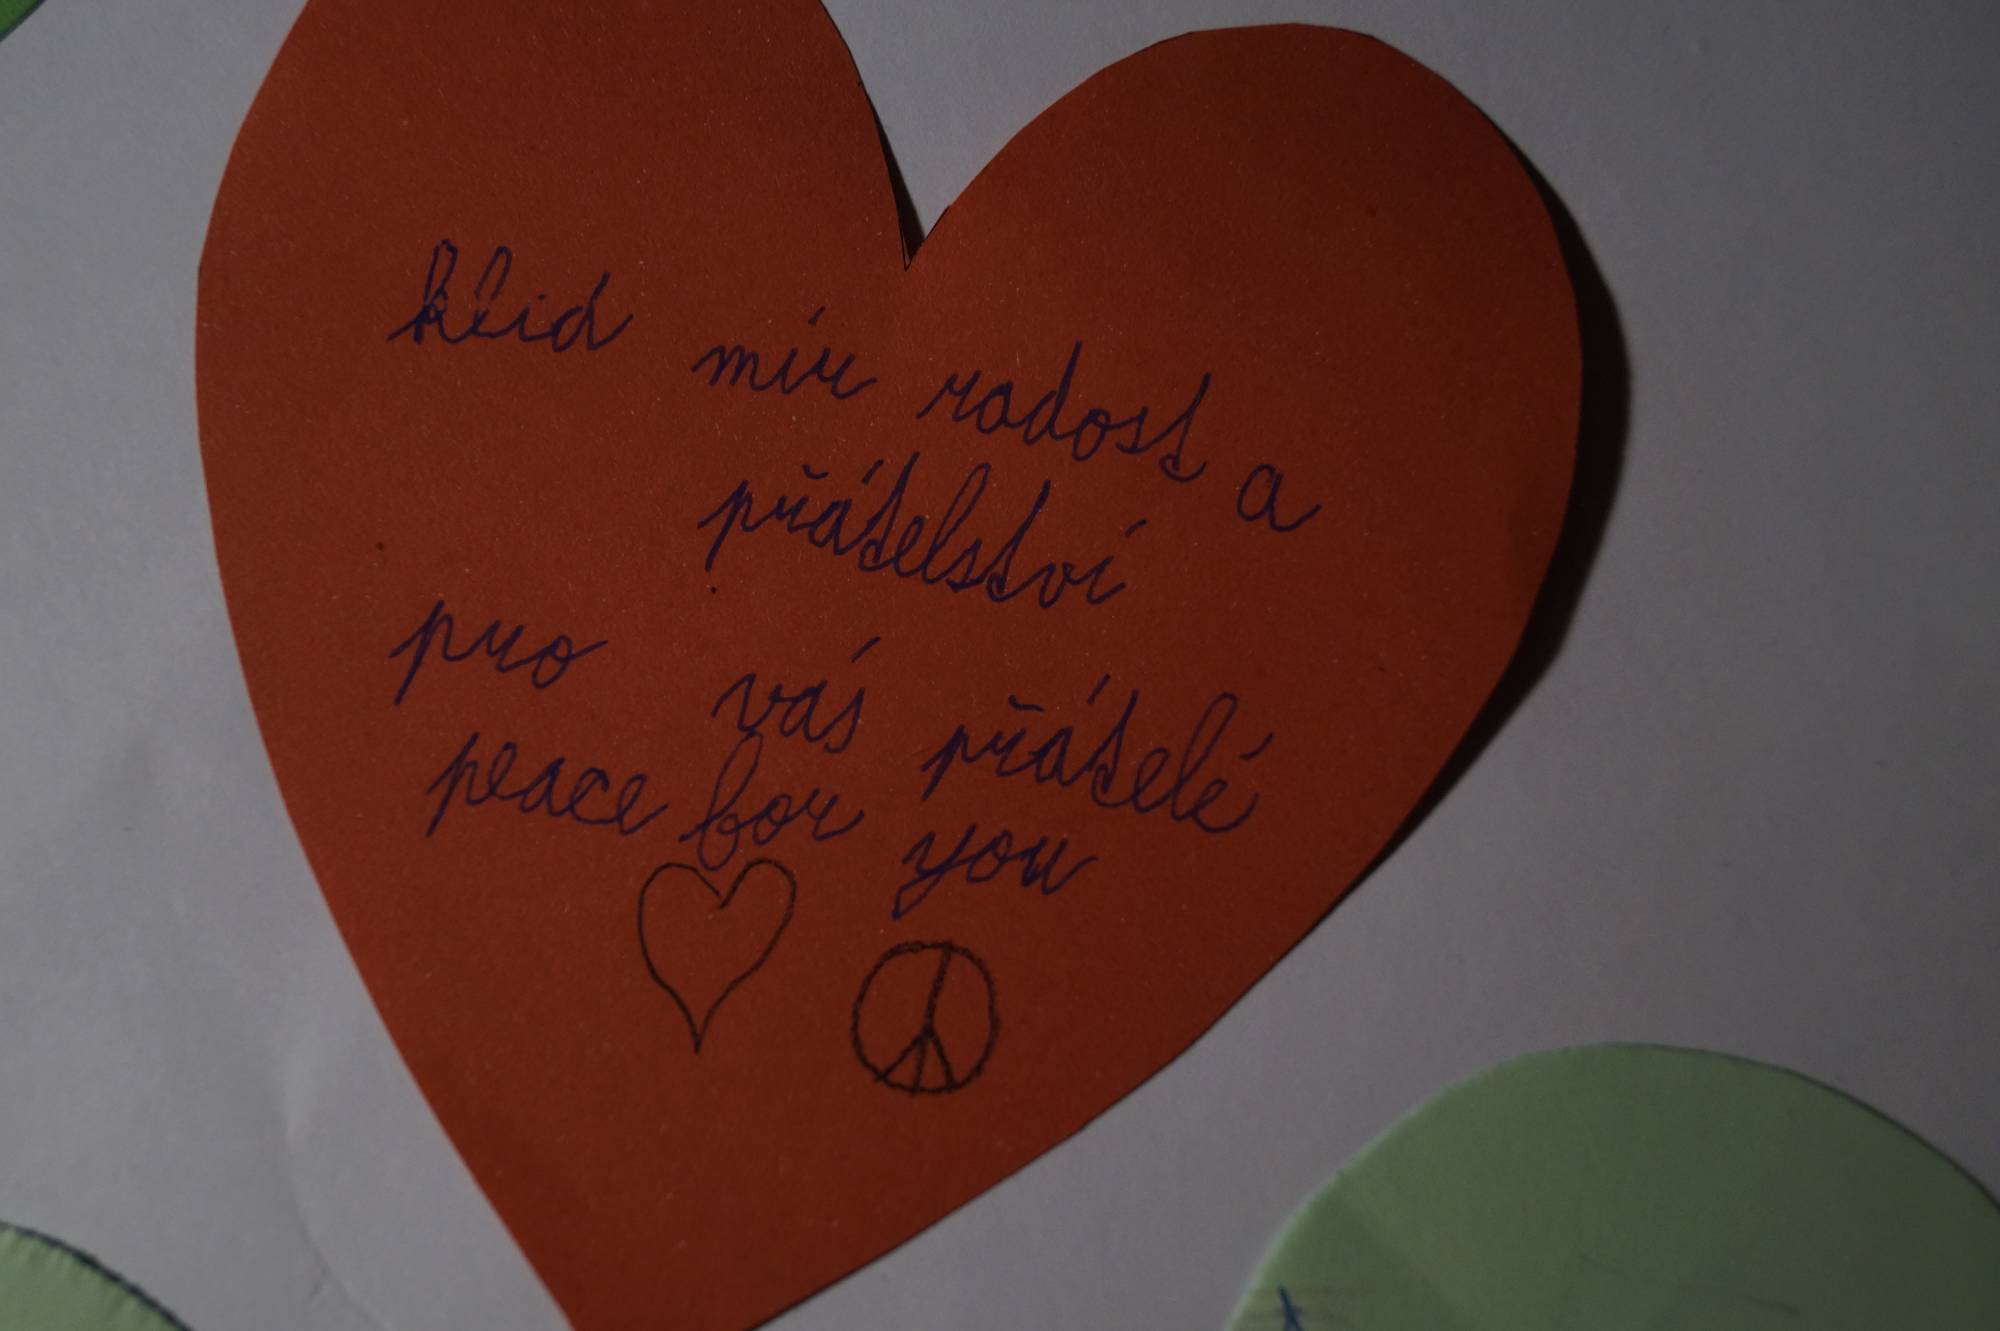 klid mír radost a
přátelství
pro vás přátelé
peace for you